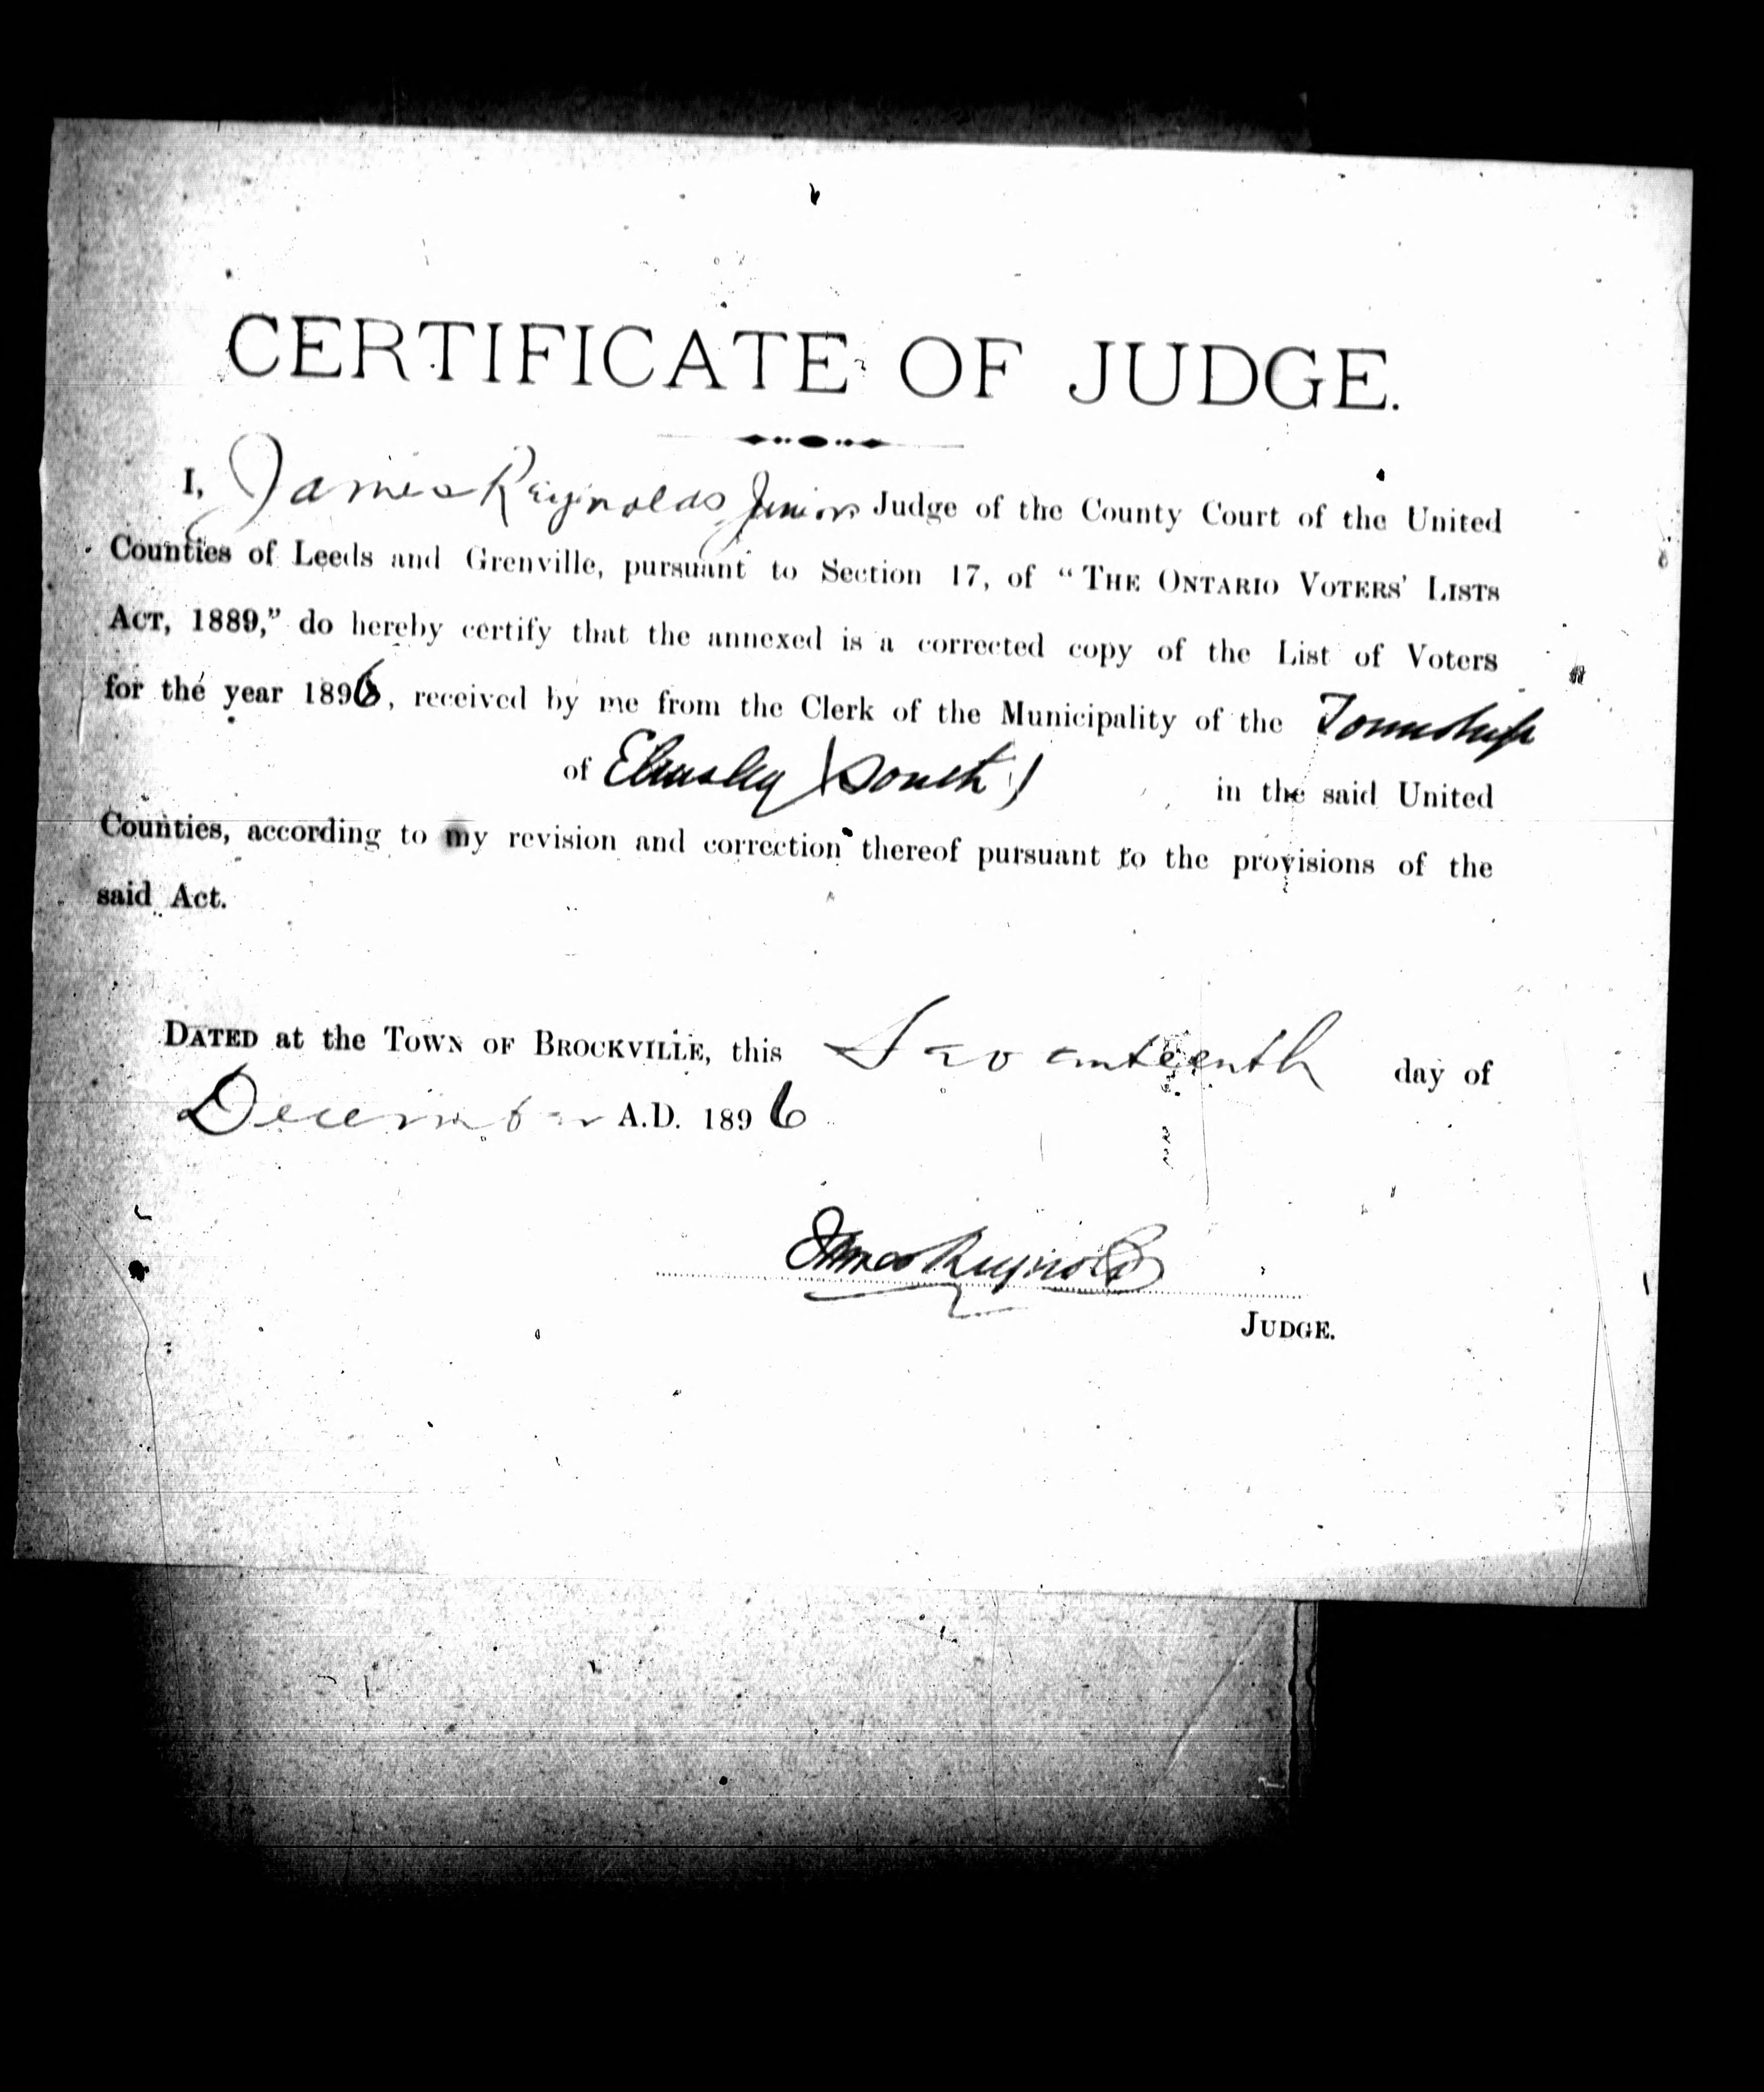 CERTIFICATE OF JUDGE.
I, James Reynolds Junior Judge of the County Court of the United
Counties of Leeds and Grenville, pursuant to Section 17, of "THE ONTARIO VOTERS' LISTS
ACT, 1889," do hereby certify that the annexed is a corrected copy of the List of Voters
for the year 1896, received by me from the Clerk of the Municipality of the Township
of Elmsley (South) in the said United
Counties, according to my revision and correction thereof pursuant to the provisions of the
said Act.
DATED at the TOWN OF BROCKVILLE, this Seventeenth day of
December A.D. 1896
James Reynolds
JUDGE.